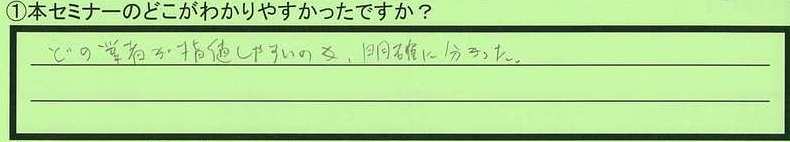 ①本セミナーのどこがわかりやすかったですか？
どの業者が指値しやすいのか、明確に分かった。